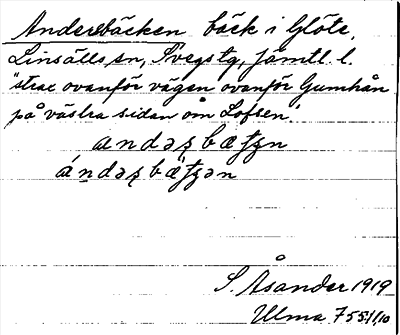 Andersbäcken bäck i Glöte,
Linsälls sn, Svegs tg, Jämtl. l.
"strax ovanför vägen ovanför Gumhån
på västra sidan om Lofsen".
S. Åsander 1919
Ulma 755:1/10